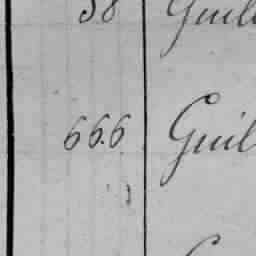 58 Guil
666 Guil